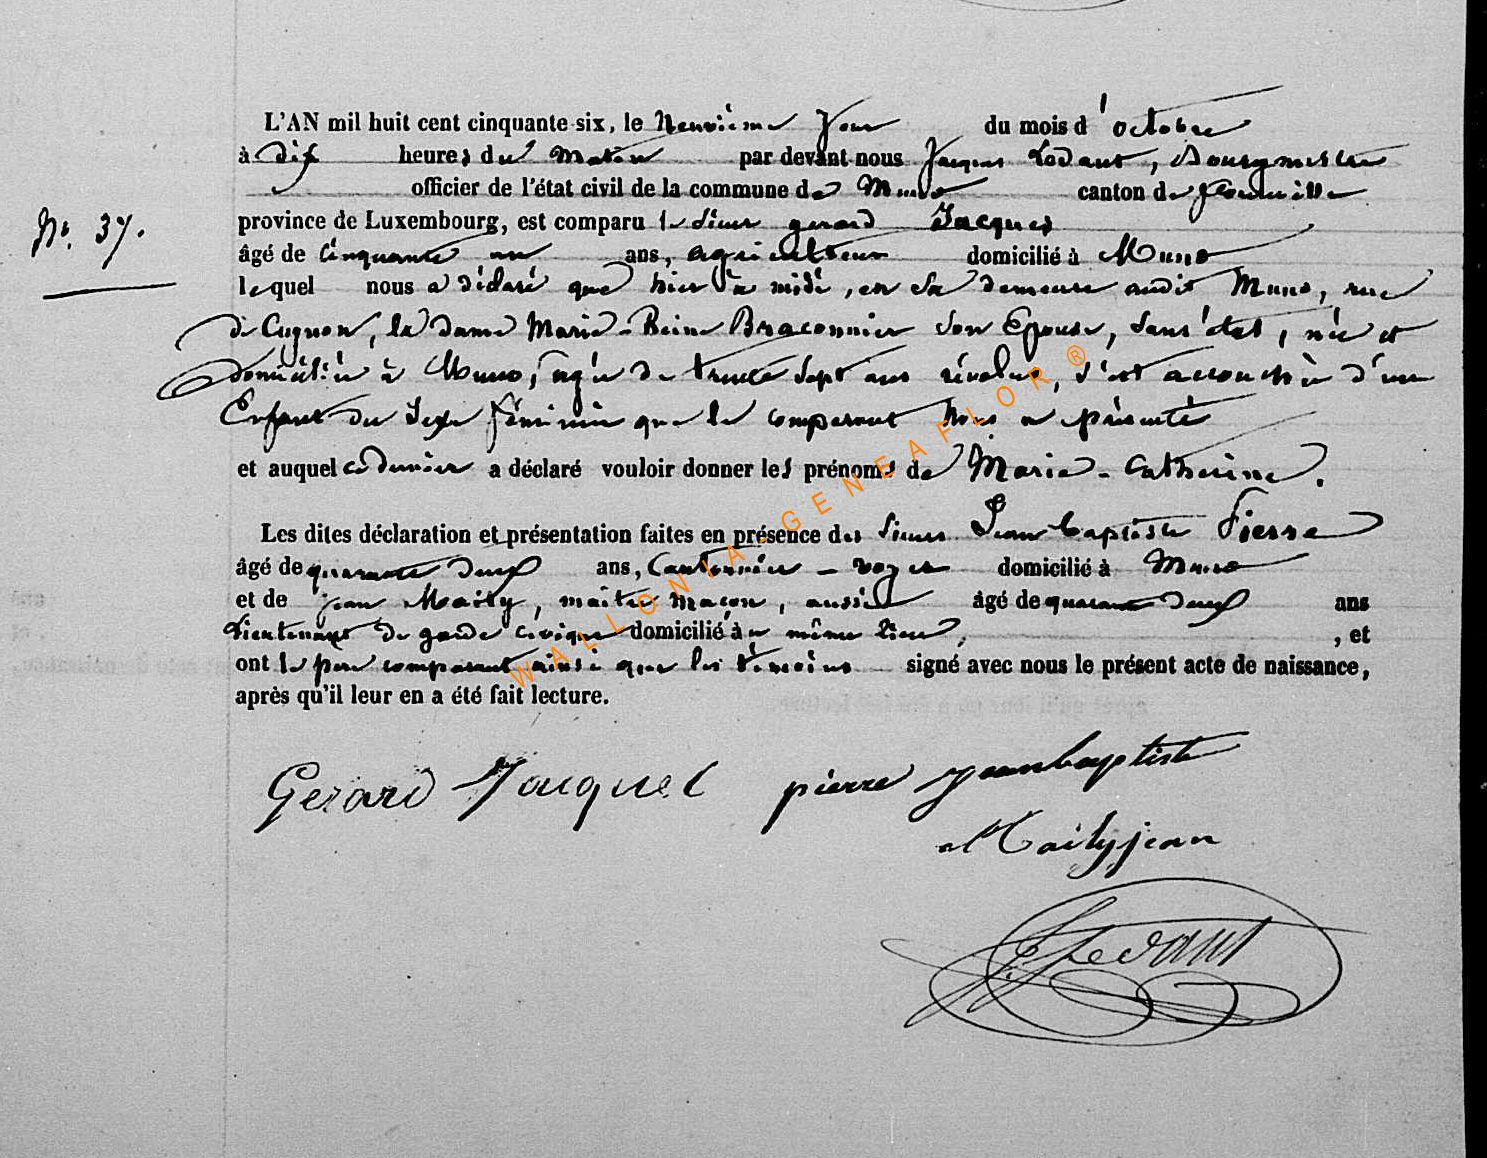 L'AN mil huit cent cinquante-six, le Neuvième Jour du mois d'octobre
à dix heures du Matin par devant nous Jacques Lodant, Bourgmestre
officier de l'état civil de la commune de Muno canton de florenville
province de Luxembourg, est comparu le sieur gerard Jacques
N°. 37.
âgé de Cinquante un ans, agriculteur domicilié à Muno
lequel nous a déclaré que hier à midi, en sa demeure audit Muno, rue
de Cugnon, la dame Marie-Reine Braconnier son Epouse, sans état, née et
domiciliée à Muno, agée de trente sept ans révolus, s'est accouchée d'un
Enfant du Sexe féminin que le comparant nous a présenté
et auquel ce dernier a déclaré vouloir donner les prénoms de Marie-Catherine.
Les dites déclaration et présentation faites en présence des sieurs Jean Baptiste Pierre
âgé de quarante deux ans, Cantonnier-voyer domicilié à Muno
et de jean Maily, maître maçon, aussi âgé de quarante deux ans
Lieutenant de garde civique domicilié à même lieu, , et
ont le père comparant ainsi que les témoins signé avec nous le présent acte de naissance,
après qu'il leur en a été fait lecture.
Gerard Jacques pierre jeanbaptiste
Maily jean
WALLONIA-GENEAFLOR ®